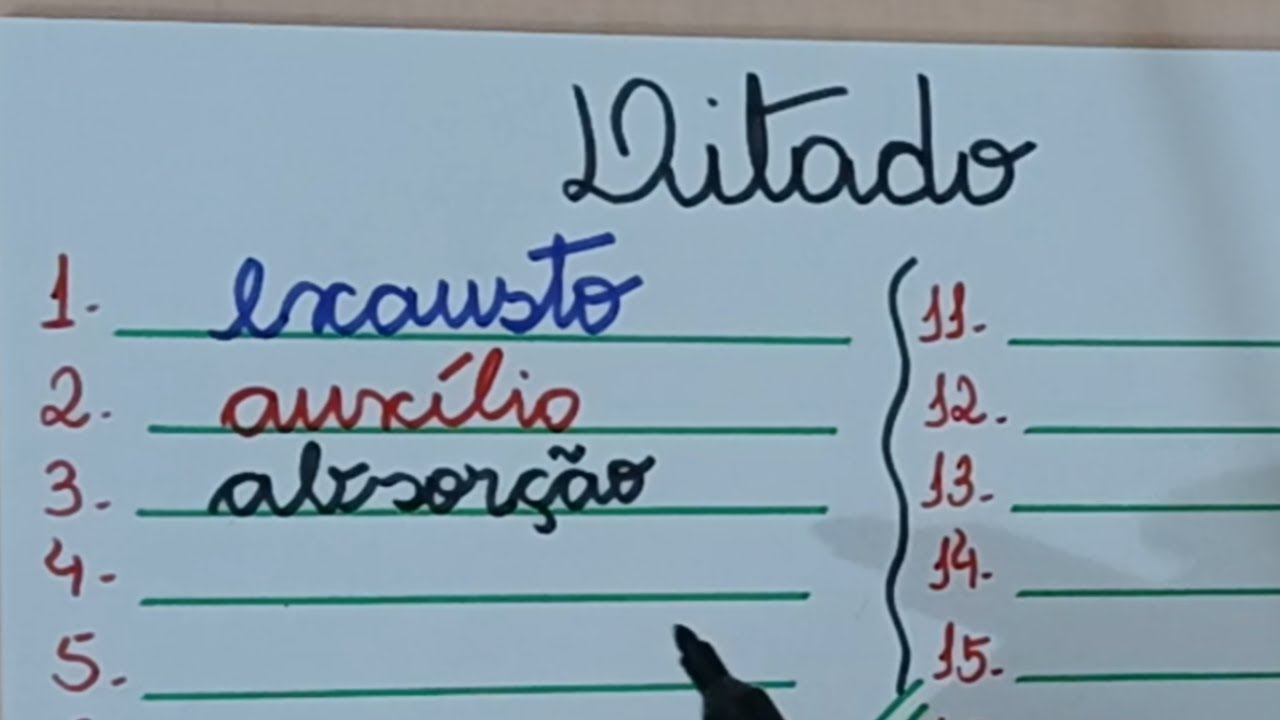 Ditado
1. exausto
2. auxílio
3. absorção
4.
5.
11.
12.
13.
14.
15.